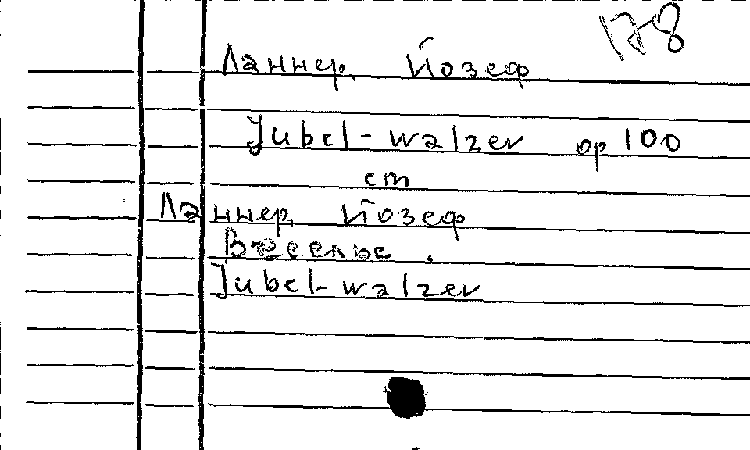 178
Ланнер, Йозеф
Jubel-walzer op 100
ст
Ланнер, Йозеф
Jubel-walzer